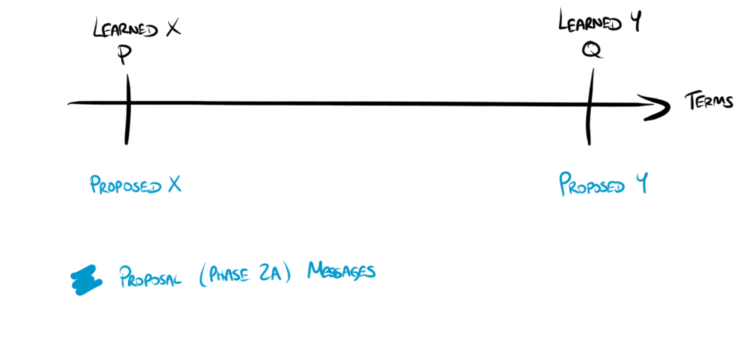 LEARNED X
P
LEARNED Y
Q
TERMS
PROPOSED X
PROPOSED Y
PROPOSAL (PHASE 2A) MESSAGES